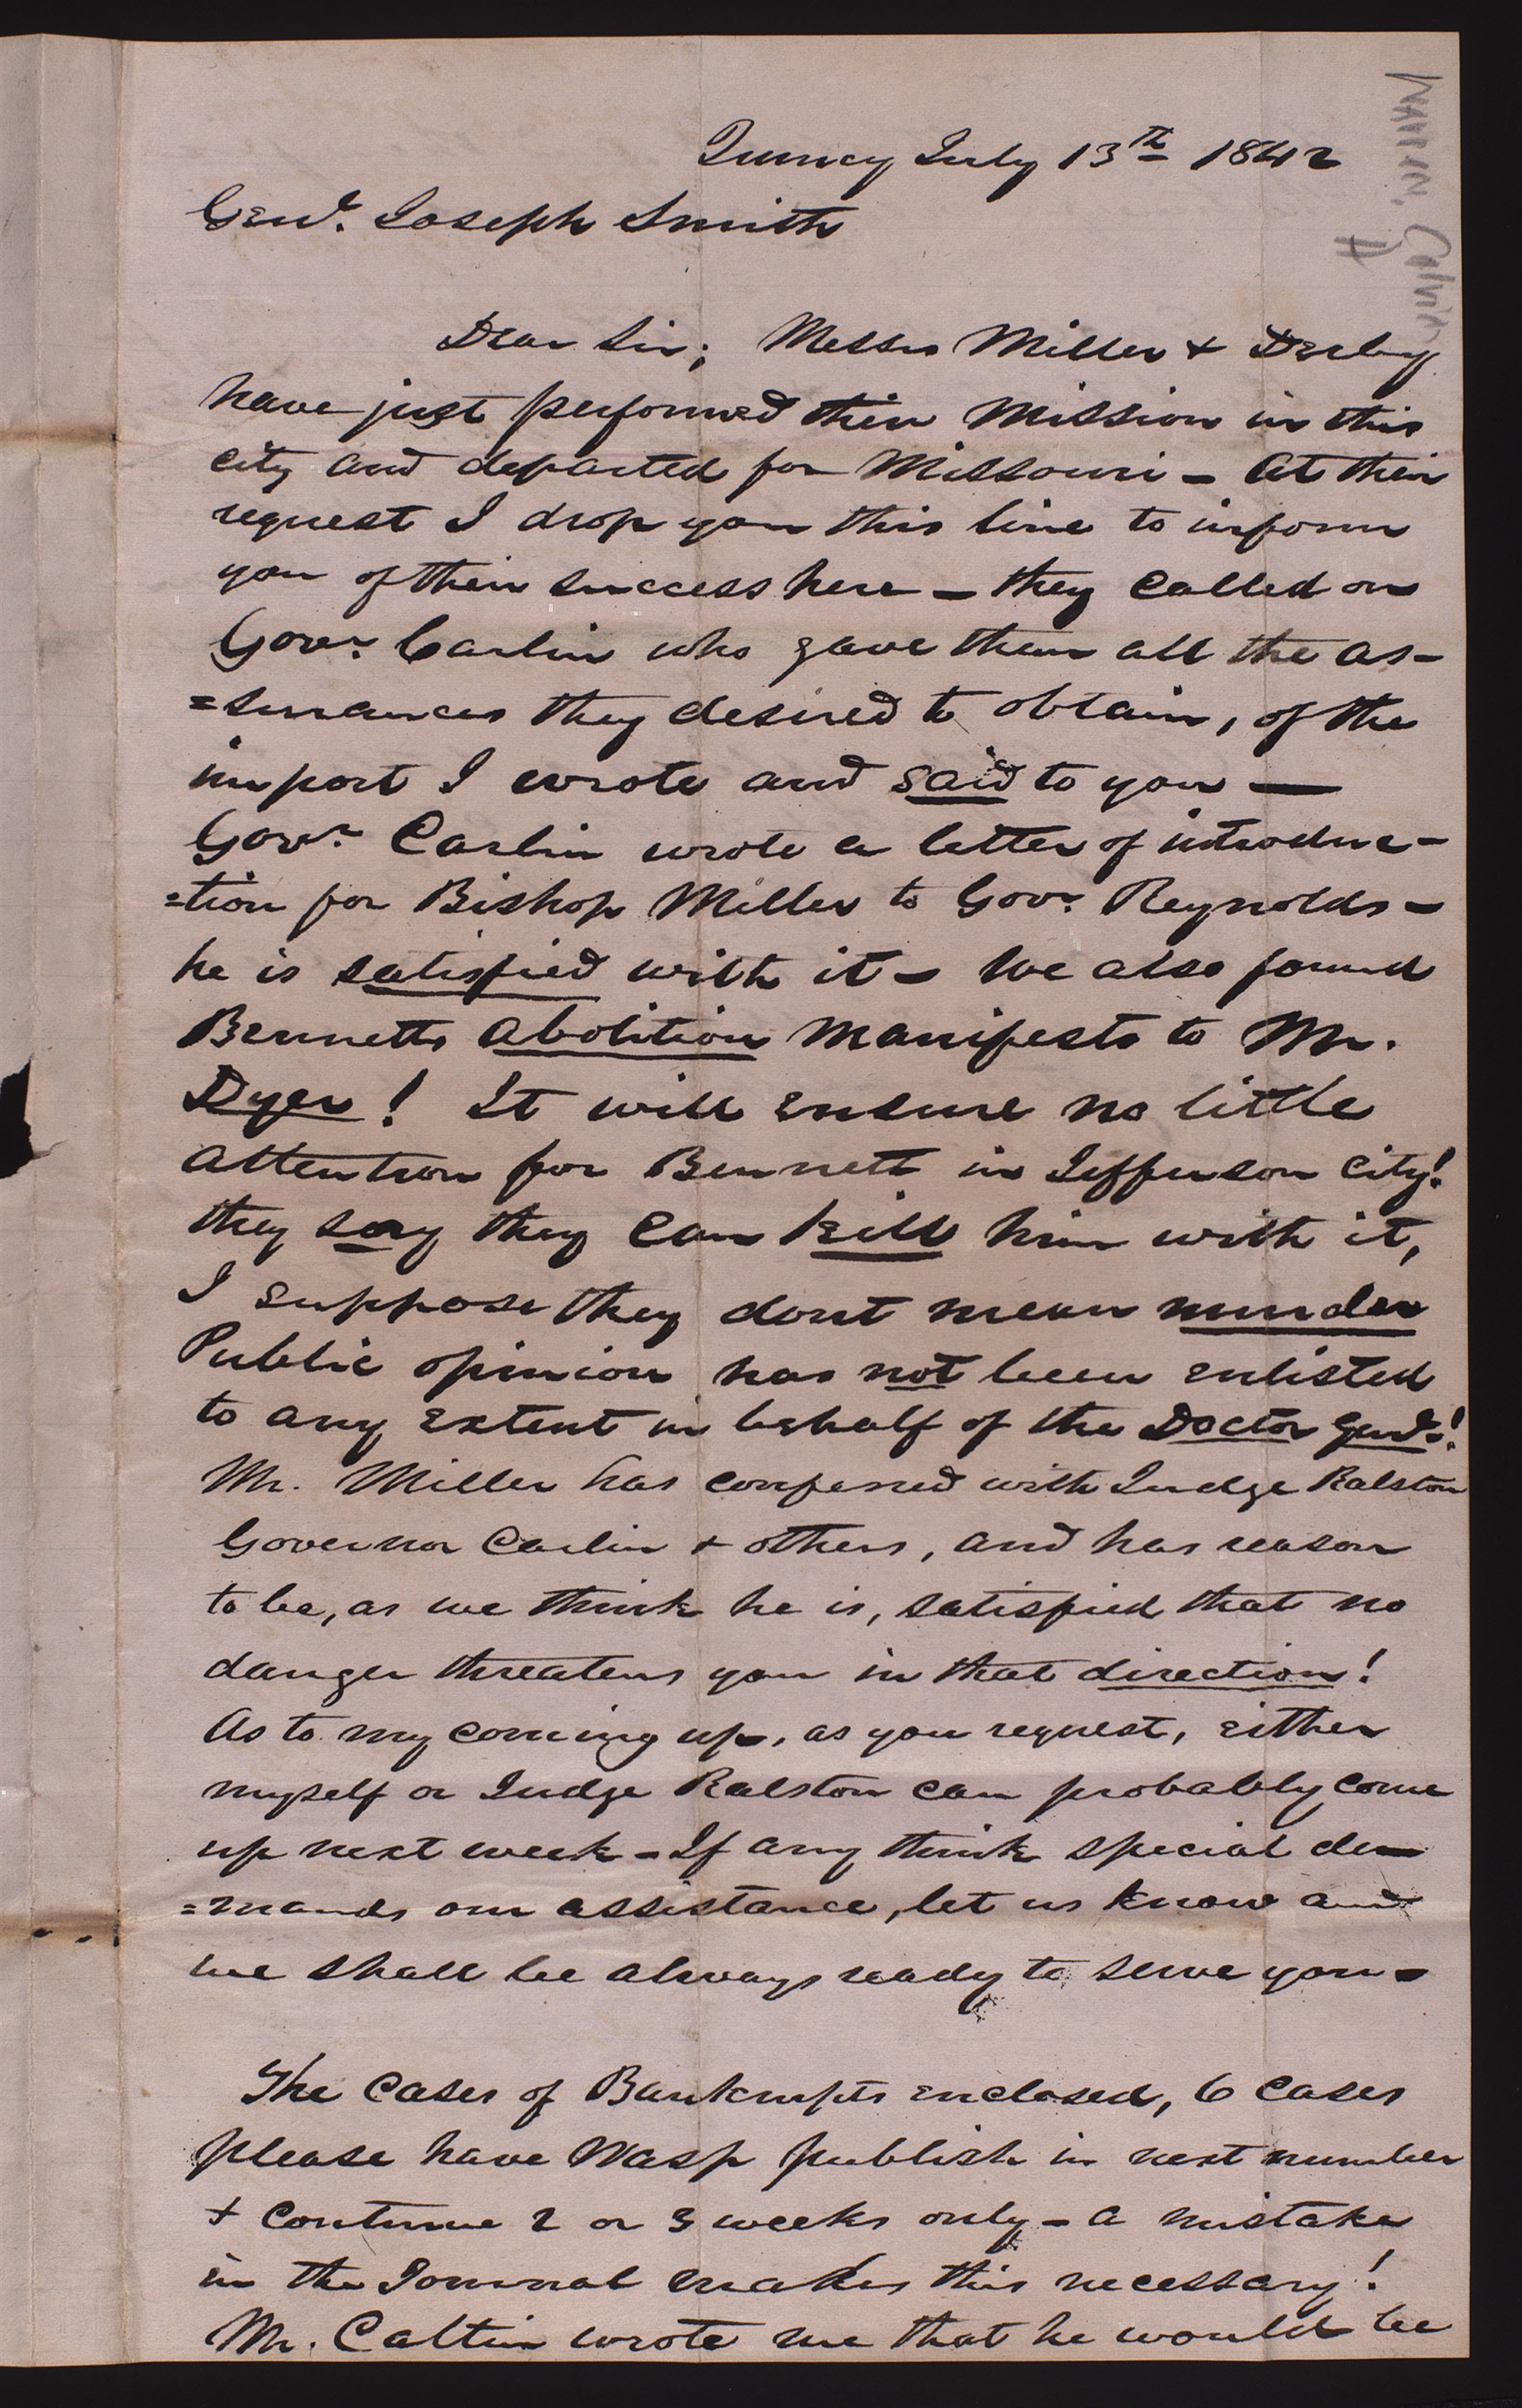 Quincy July 13th 1842
Genl. Joseph Smith
Dear Sir; Messrs Miller & Derby
have just performed their Mission in this
city and departed for Missouri - At their
request I drop you this line to inform
you of their success here - they called on
Govr. Carlin who gave them all the as-
=surances they desired to obtain, of the
import I wrote and said to you —
Govr. Carlin wrote a letter of introduc-
=tion for Bishop Miller to Govr. Reynolds -
he is satisfied with it - We also found
Bennetts abolition manifesto to Mr.
Dyer! It will ensure no little
attention for Bennett in Jefferson city!
they say they can kill him with it,
I suppose they dont mean murder
Public opinion has not been enlisted
to any extent in behalf of the Doctor Genl.!
Mr. Miller has conferred with Judge Ralston
Governor Carlin & others, and has reason
to be, as we think he is, satisfied that no
danger threatens you in that direction!
As to my coming up, as you request, either
myself or Judge Ralston can probably come
up next week - If any think special de-
=mands our assistance, let us know and
we shall be always ready to serve you -
The cases of Bankrupts enclosed, 6 cases
please have Wasp publish in next number
& continue 2 or 3 weeks only - a mistake
in the Journal makes this necessary!
Mr. Catlin wrote me that he would be
Warren, Calvin
A